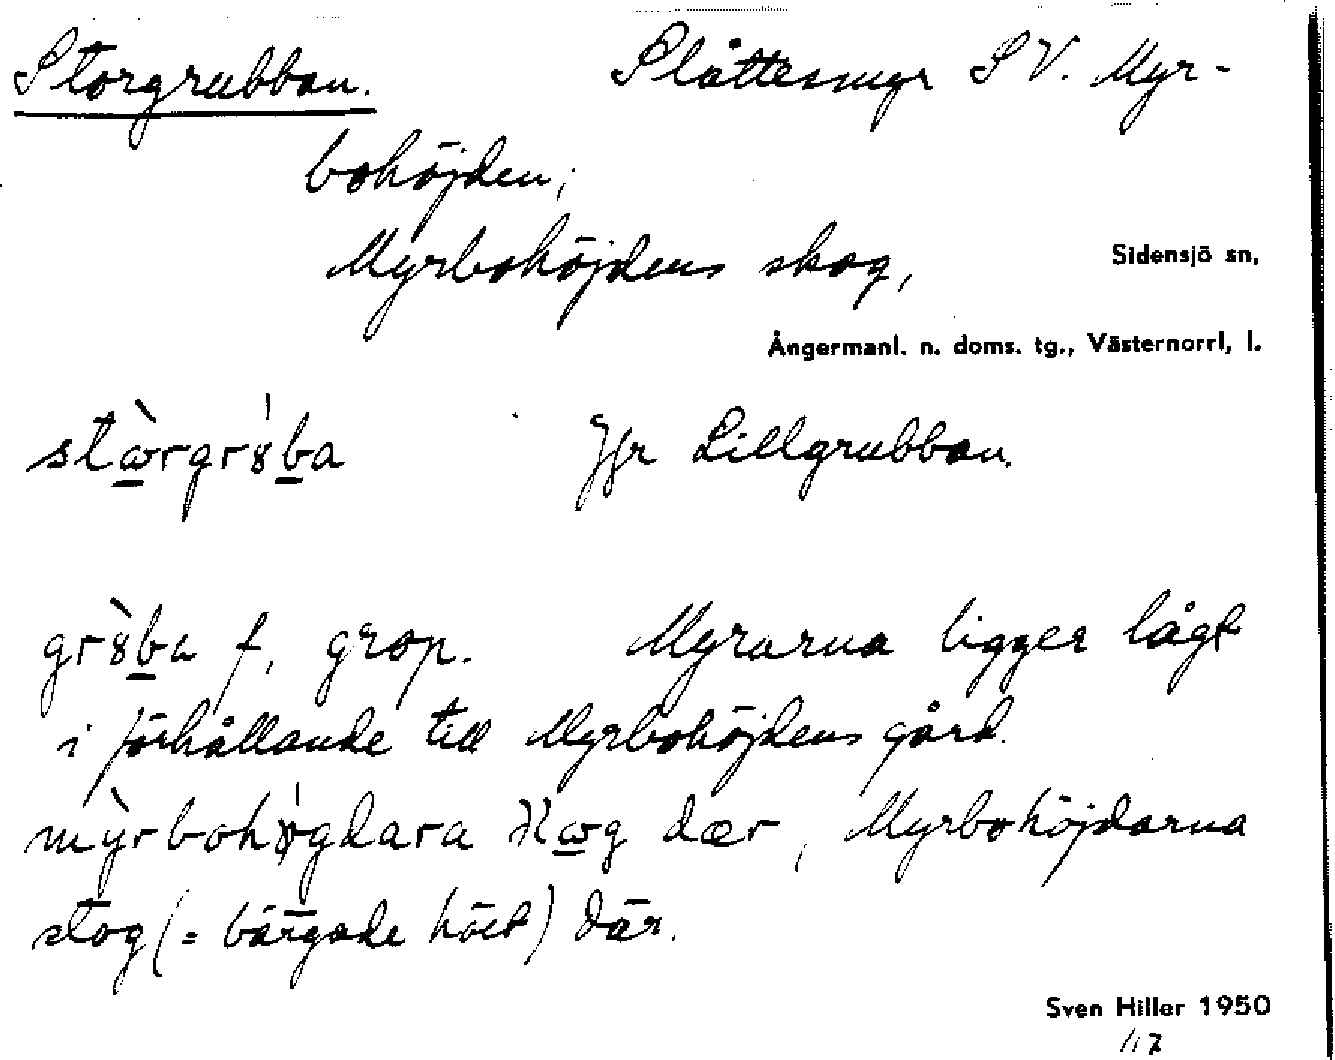 Storgrubban. Slåttesmyr S V. Myr-
bohöjden;
Myrbohöjdens skog,
Sidensjö sn,
Ångermanl. n. doms. tg., Västernorrl, l.
Jfr Lillgrubban.
f, grop. Myrarna ligger lågt
i förhållande till Myrbohöjdens gård.
dær, Myrbohöjdarna
stog (= bärgade höet) där.
Sven Hiller 1950
117